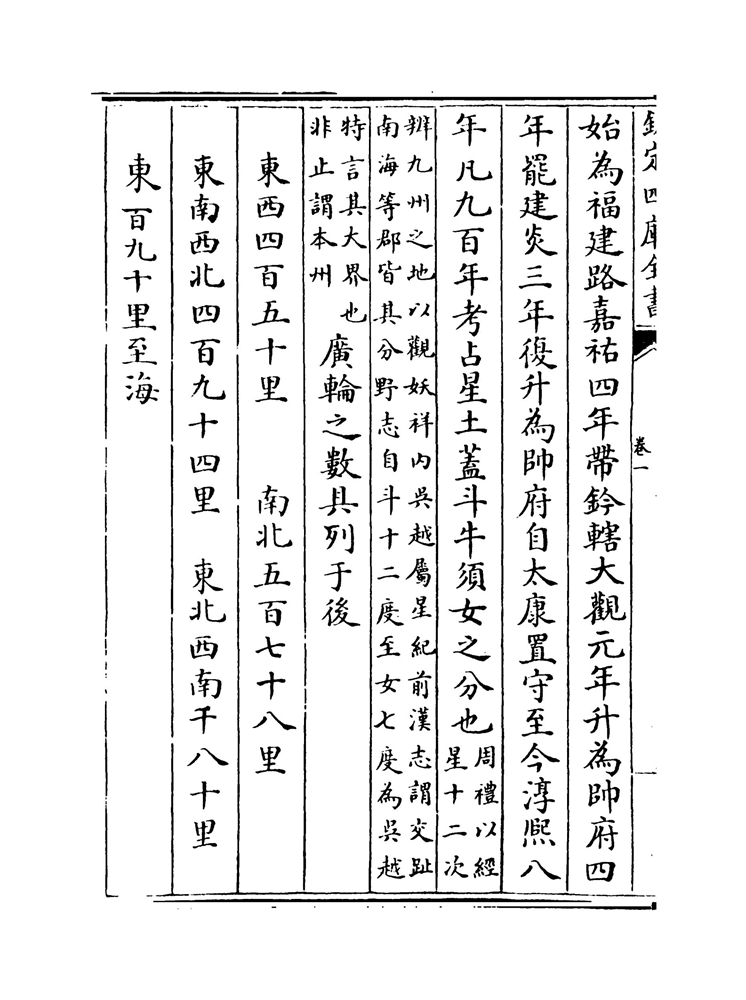 欽定四庫全書 卷一
始為福建路嘉祐四年帶鈐轄大觀元年升為帥府四
年罷建炎三年復升為帥府自太康置守至今淳熙八
年凡九百年考占星土蓋斗牛須女之分也
周禮以經
星十二次
辨九州之地以觀妖祥内吳越屬星紀前漢志謂交趾
南海等郡皆其分野志自斗十二度至女七度為吳越
特言其大界也
非止謂本州
廣輪之數具列于後
東西四百五十里 南北五百七十八里
東南西北四百九十四里 東北西南千八十里
東百九十里至海